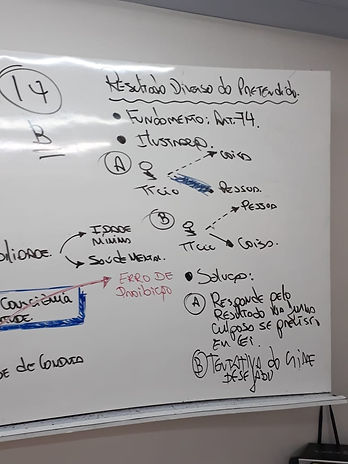 14
B
Resultado Diverso do Pretendido.
• Fundamento: Art. 74.
• Ilustração.
A
Coisa
Tício
Pessoa.
B
Pessoa
Tício
Coisa.
ilidade.
Idade
Mínima
Saúde Mental.
Consciência
tude.
Erro de
Proibição
de de Conduta
• Solução:
A Responde pelo
Resultado
culposo se previsto
em lei.
B Tentativa do crime
desejado